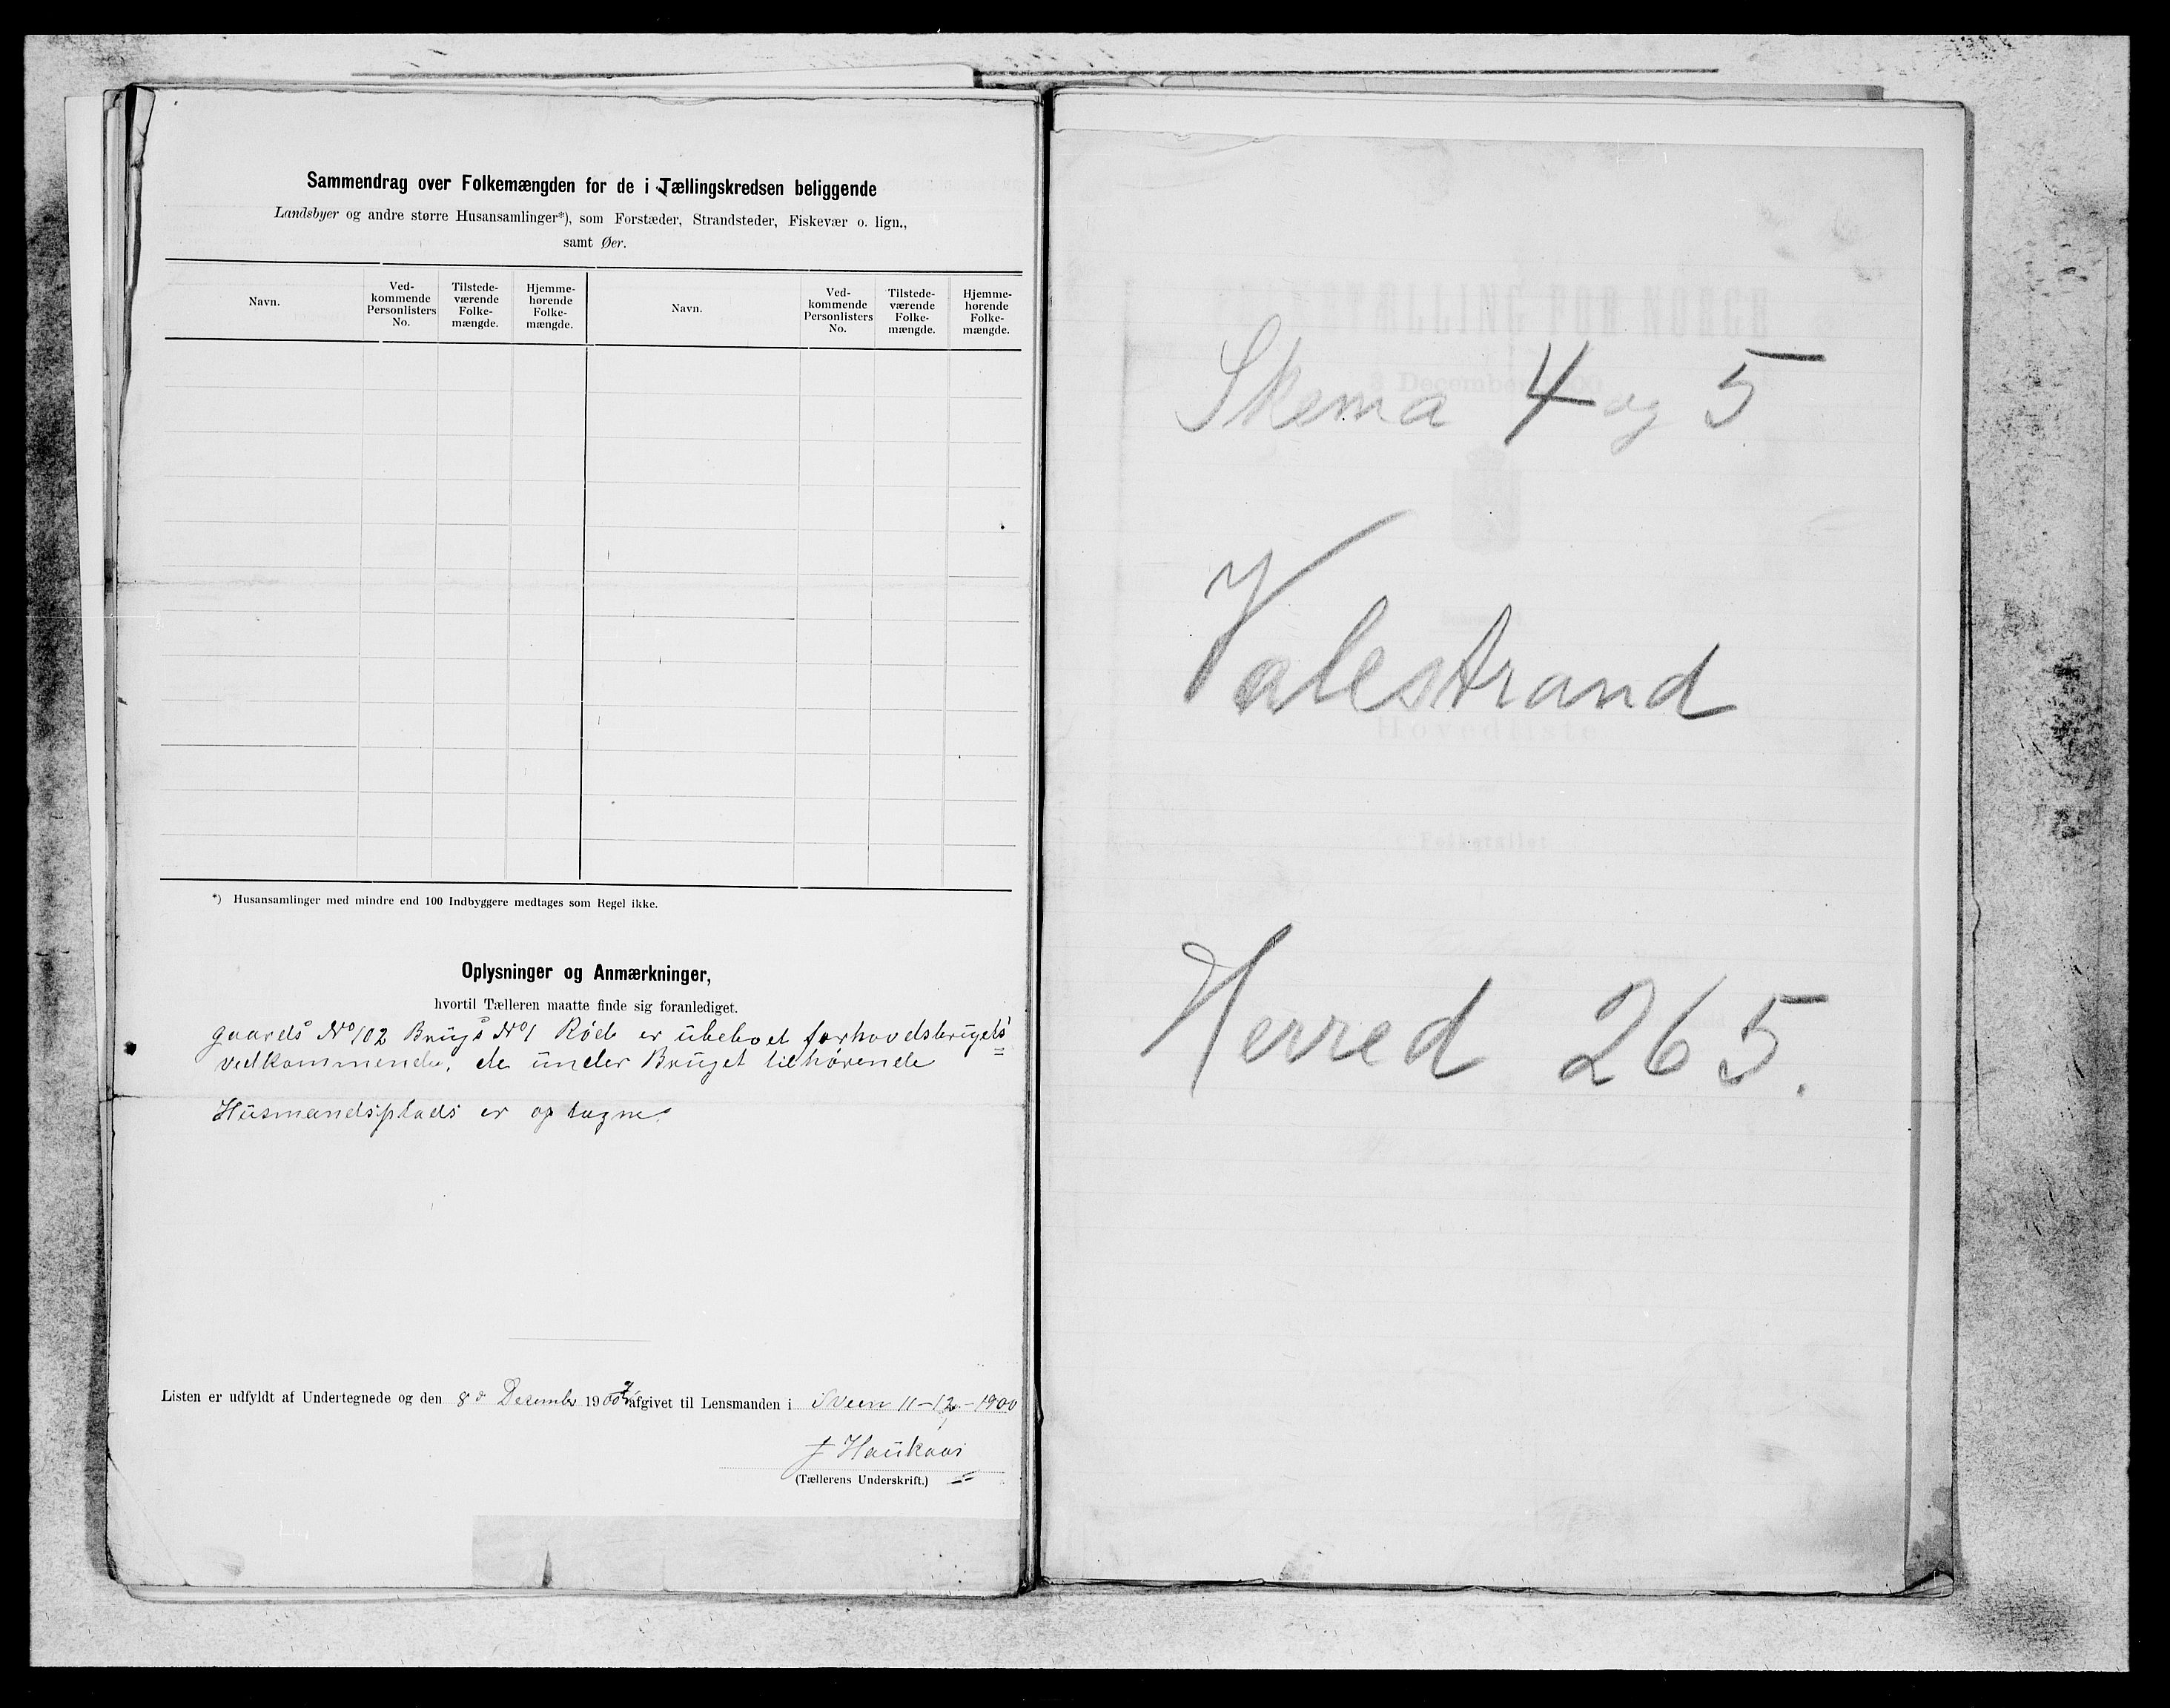 Sammendrag over Folkemængden for de i Tællingskredsen beliggende
Landsbyer og andre større Husansamlinger*), som Forstæder, Strandsteder, Fiskevær o. lign.,
samt Øer.
Navn.
Ved-
kommende
Personlisters
No.
Tilstede-
værende
Folke-
mængde.
Hjemme-
hørende
Folke-
mængde.
Navn.
Ved-
kommende
Personlisters
No.
Tilstede-
værende
Folke-
mængde.
Hjemme-
hørende
Folke-
mængde.
*) Husansamlinger med mindre end 100 Indbyggere medtages som Regel ikke.
Oplysninger og Anmærkninger,
hvortil Tælleren maatte finde sig foranlediget.
gaards No 102 Brugs No 1 Röde er ubeboet forhovdsbrugets
vedkommende, de under Bruget tilhørende
Husmandsplads er optagne.
Listen er udfyldt af Undertegnede og den 8d Desember 1900 afgivet til Lensmanden i Sveen 11-12-1900
J Haukaas
(Tællerens Underskrift.)
Skema 4 og 5
Valestrand
Herred 265.
FOLKETÆLLING FOR NORGE
3 December 1900
Hovedliste
Folketallet